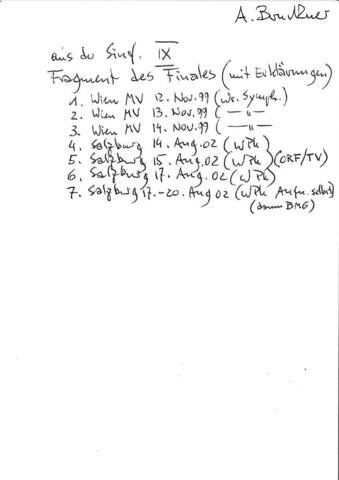 A. Bruckner
aus der Sinf. IX
Fragment des Finales (mit Erklärungen)
1. Wien MV 12. Nov. 99 (Wr. Symph.)
2. Wien MV 13. Nov. 99 ( — " — )
3. Wien MV 14. Nov. 99 ( — " — )
4. Salzburg 14. Aug. 02 (WPh)
5. Salzburg 15. Aug. 02 (WPh) (ORF/TV)
6. Salzburg 17. Aug. 02 (WPh)
7. Salzburg 17.-20. Aug 02 (WPh Aufn. selbst)
(dann BMG)